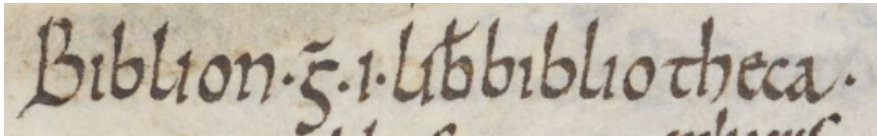 Biblion·ḡ·i·lib̄bibliotheca·